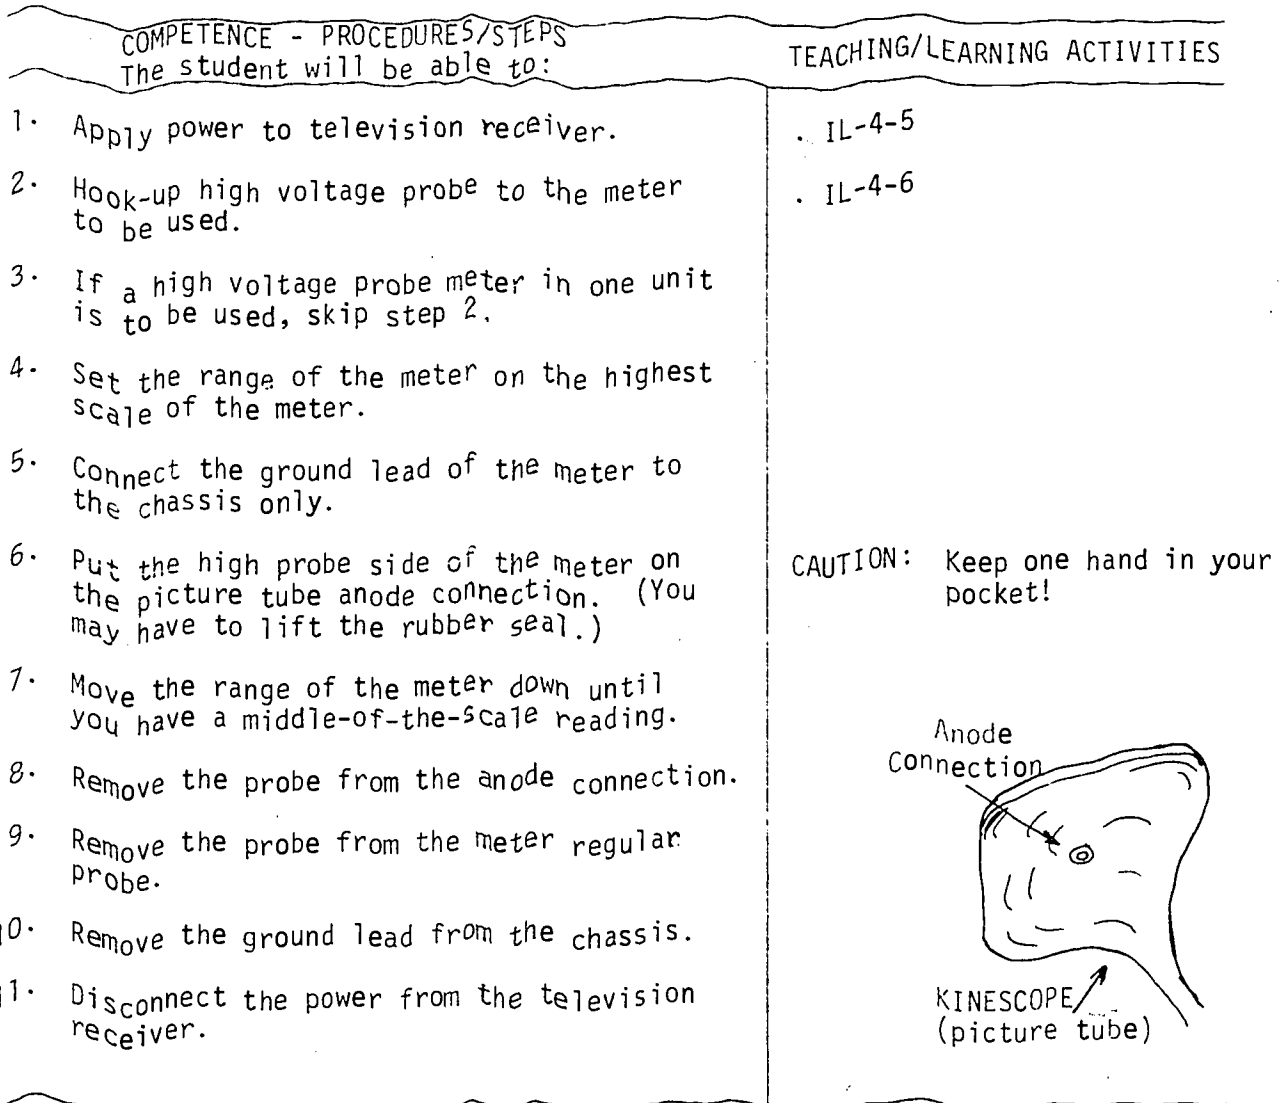 COMPETENCE - PROCEDURES/STEPS
The student will be able to:
TEACHING/LEARNING ACTIVITIES
1. Apply power to television receiver.
. IL-4-5
2. Hook-up high voltage probe to the meter
to be used.
. IL-4-6
3. If a high voltage probe meter in one unit
is to be used, skip step 2.
4. Set the range of the meter on the highest
scale of the meter.
5. Connect the ground lead of the meter to
the chassis only.
6. Put the high probe side of the meter on
the picture tube anode connection. (You
may have to lift the rubber seal.)
CAUTION: Keep one hand in your
pocket!
7. Move the range of the meter down until
you have a middle-of-the-scale reading.
8. Remove the probe from the anode connection.
9. Remove the probe from the meter regular
probe.
10. Remove the ground lead from the chassis.
11. Disconnect the power from the television
receiver.
Anode
Connection
KINESCOPE
(picture tube)